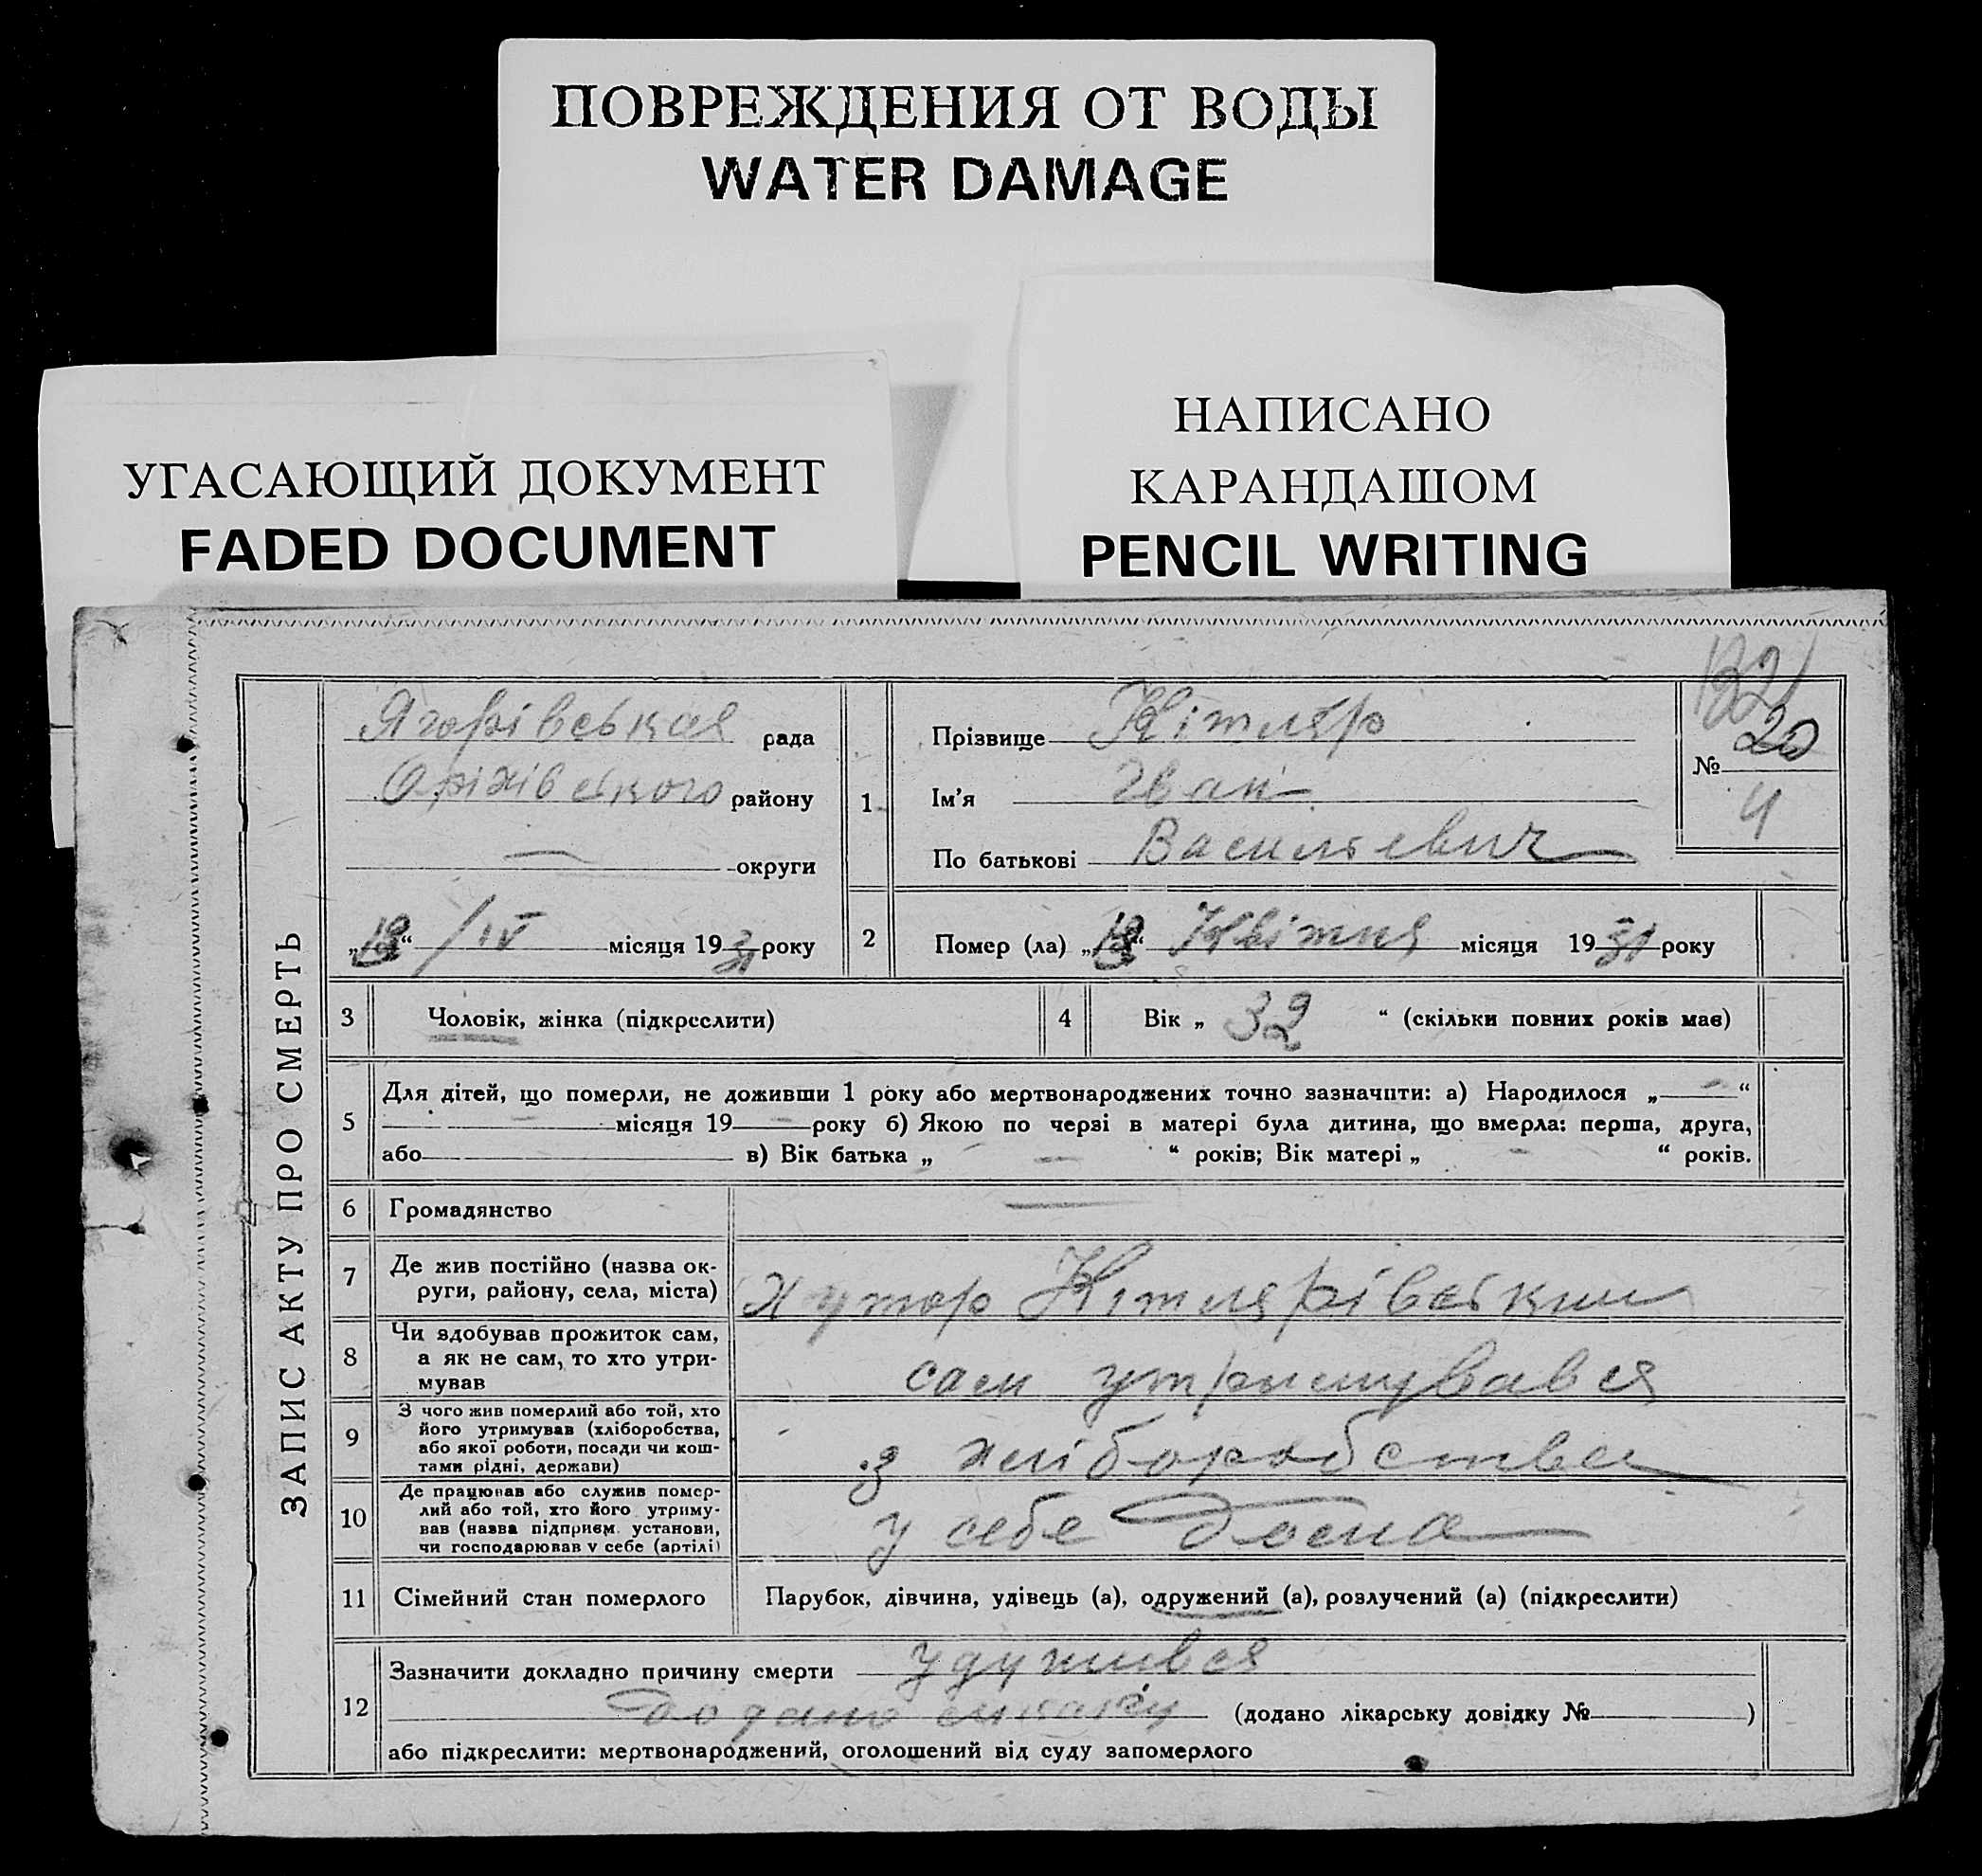 ПОВРЕЖДЕНИЯ ОТ ВОДЫ
WATER DAMAGE
УГАСАЮЩИЙ ДОКУМЕНТ
FADED DOCUMENT
НАПИСАНО
КАРАНДАШОМ
PENCIL WRITING
ЗАПИС АКТУ ПРО СМЕРТЬ
Ягорівская рада
Оріхівського району
— округи
„ “ /IV місяця 1931 року
1
Прізвище Кітляр
Ім’я Іван
По батькові Васильевич
132
№ 20
4
2 Помер (ла) „ “ Квітня місяця 1931 року
3 Чоловік, жінка (підкреслити)
4 Вік „ 32 “ (скільки повних років має)
5 Для дітей, що померли, не доживши 1 року або мертвонароджених точно зазначити: а) Народилося „—“
— місяця 19— року б) Якою по черзі в матері була дитина, що вмерла: перша, друга,
або в) Вік батька „ — “ років; Вік матері „ - “ років.
6 Громадянство —
7 Де жив постійно (назва ок-
руги, району, села, міста) хутор Кітлярівський
8 Чи здобував прожиток сам,
а як не сам, то хто утри-
мував сам утримувався
9 З чого жив померлий або той, хто
його утримував (хліборобства,
або якої роботи, посади чи кош-
тами рідні, держави) з хліборобства
10 Де працював або служив помер-
лий або той, хто його утриму-
вав (назва підприєм. установи,
чи господарював у себе (артілі) у себе дома
11 Сімейний стан померлого Парубок, дівчина, удівець (а), одружений (а), розлучений (а) (підкреслити)
12 Зазначити докладно причину смерти удушився
додано (додано лікарську довідку № )
або підкреслити: мертвонароджений, оголошений від суду запомерлого